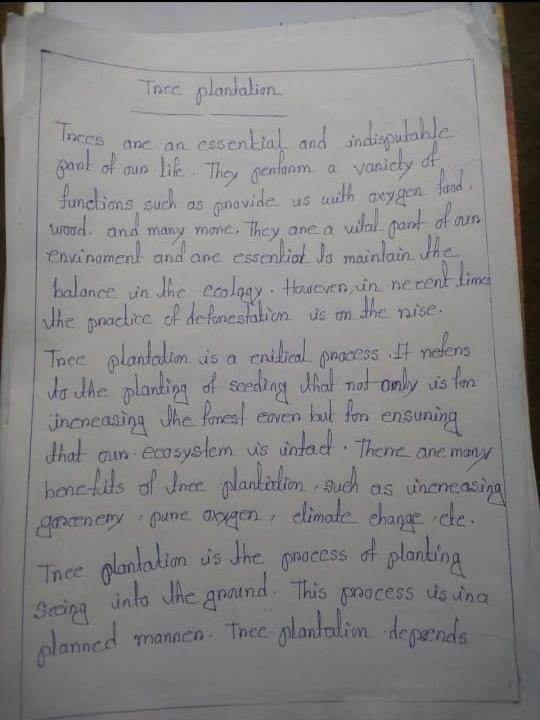 Tree plantation
Trees are an essential and indisputable
part of our life. They perform a variety of
functions such as provide us with oxygen food,
wood. and many more. They are a vital part of our
envinoment and are essential to maintain the
balance in the ecology. However, in recent time
the practice of deforestation is on the rise.
Tree plantation is a critical process. It refers
to the planting of seeding that not only is for
increasing the forest cover but for ensuring
that our ecosystem is intact. There are many
benefits of tree plantation, such as increasing
greenery, pure oxygen, climate change, etc.
Tree plantation is the process of planting
Seeing into the ground. This process is in a
planned manner. Tree plantation depends